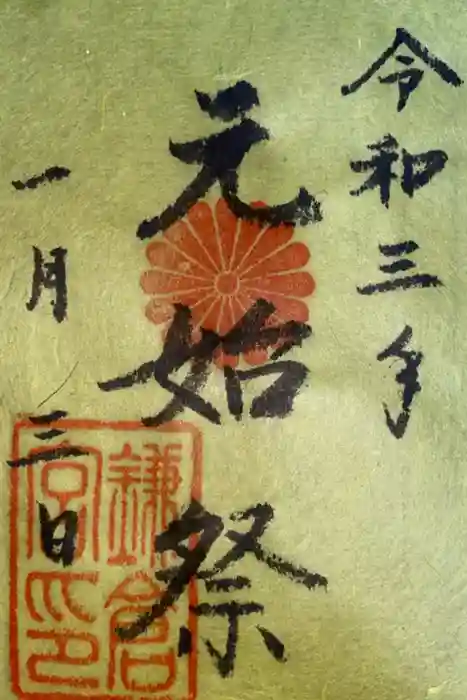 令和三年
元始祭
一月三日
鎌倉
宮印